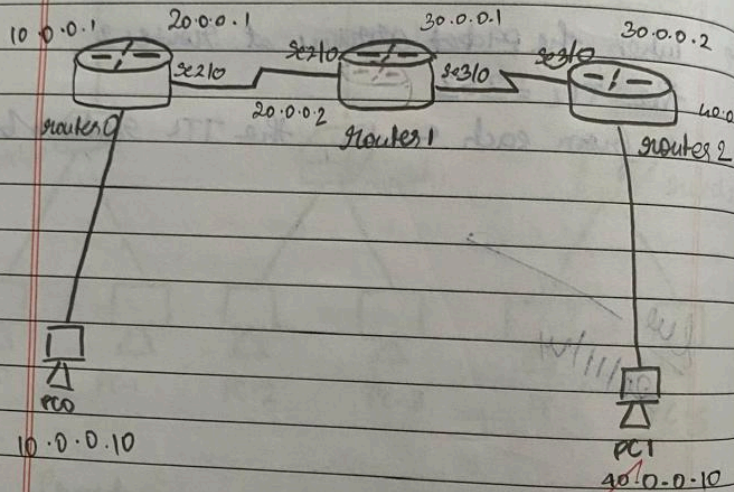 10.0.0.1
20.0.0.1
30.0.0.1
30.0.0.2
se2/0
se2/0
se3/0
se3/0
20.0.0.2
40.0
router0
router1
router2
PC0
10.0.0.10
PC1
40.0.0.10